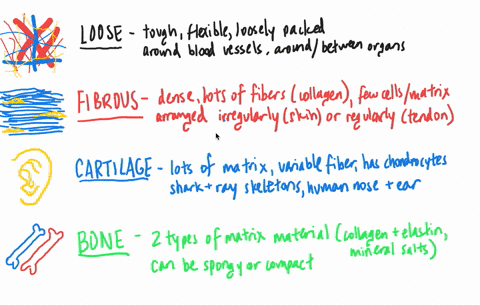 LOOSE - tough, flexible, loosely packed
around blood vessels, around/between organs
FIBROUS - dense, lots of fibers (collagen), few cells/matrix
arranged irregularly (skin) or regularly (tendon)
CARTILAGE - lots of matrix, variable fiber, has chondrocytes
shark + ray skeletons, human nose + ear
BONE - 2 types of matrix material (collagen + elastin,
mineral salts)
can be spongy or compact